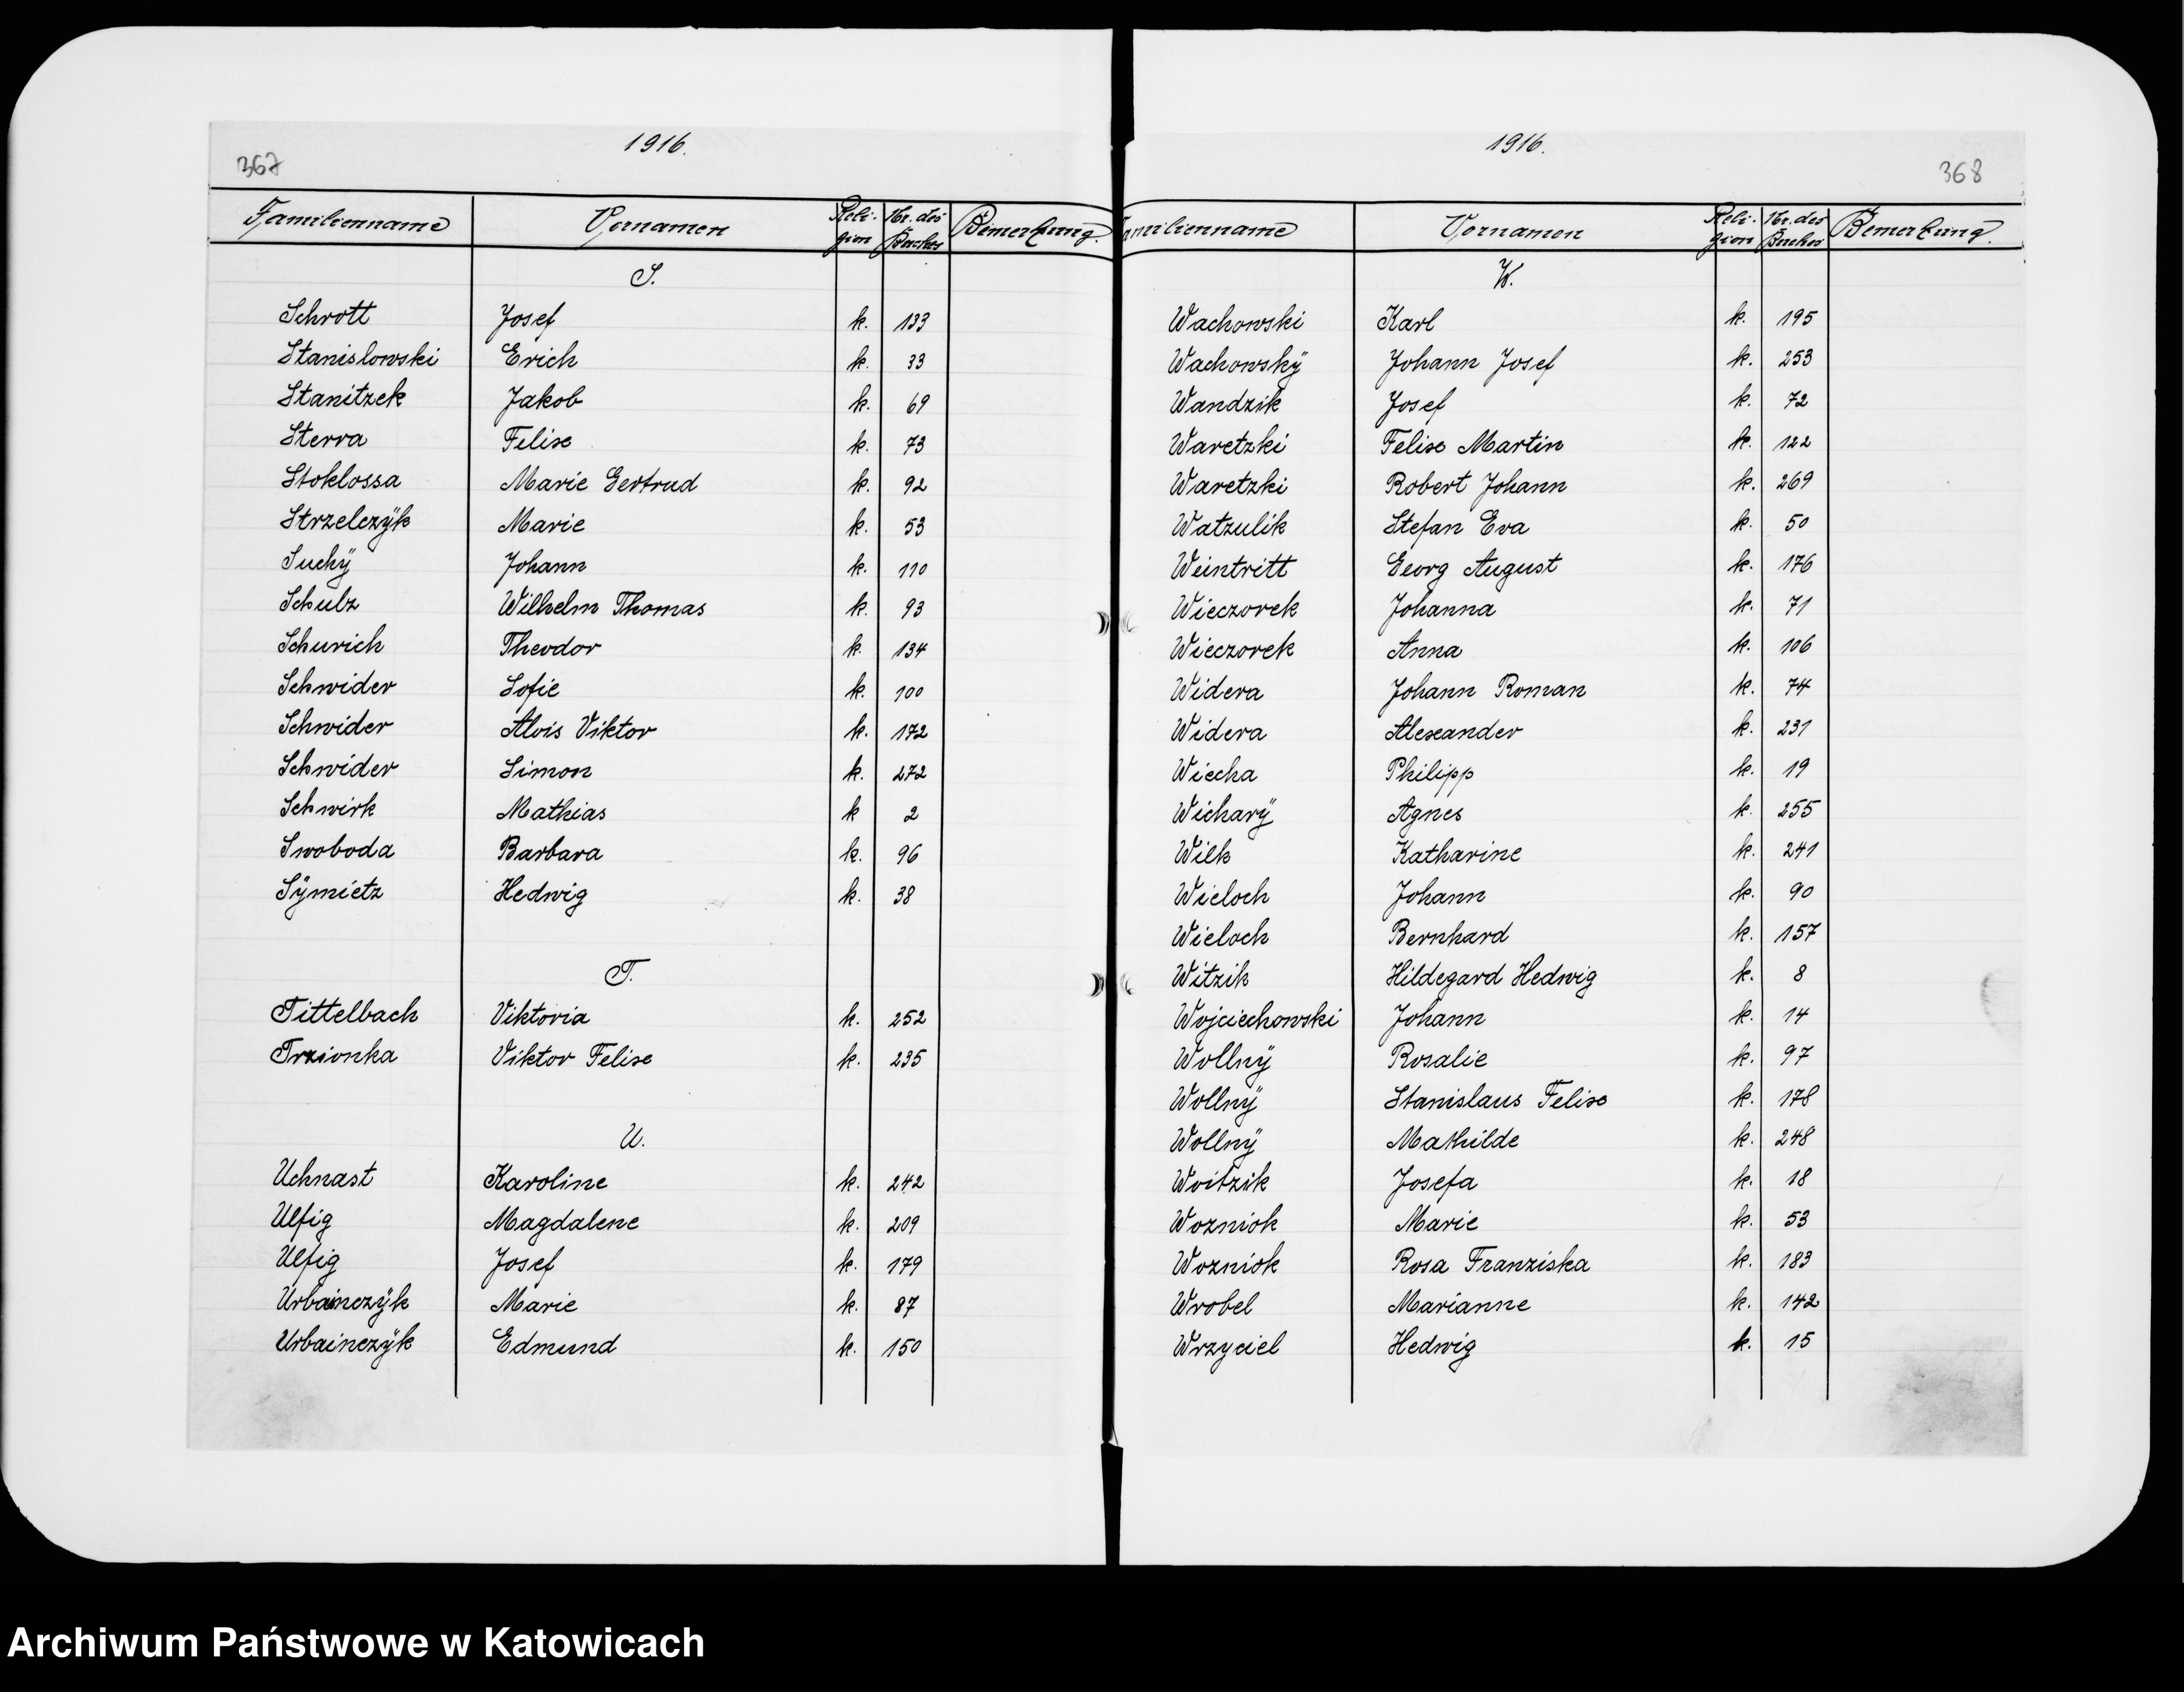 1916.
367
Familienname Vornamen Reli-gion Nr. des Buches Bemerkung.
S.
Schrott Josef k. 133
Stanislowski Erich k. 33
Stanitzek Jakob k. 69
Sterra Felix k. 73
Stoklossa Marie Gertrud k. 92
Strzelczÿk Marie k. 53
Suchÿ Johann k. 110
Schulz Wilhelm Thomas k. 93
Schurich Theodor k. 134
Schwider Sofie k. 100
Schwider Alois Viktor k. 172
Schwider Simon k. 272
Schwirk Mathias k 2
Swoboda Barbara k. 96
Sÿmietz Hedwig k. 38
T.
Tittelbach Viktoria k. 252
Trzionka Viktor Felix k. 235
U.
Uchnast Karoline k. 242
Ulfig Magdalene k. 209
Ulfig Josef k. 179
Urbainczÿk Marie k. 87
Urbainczÿk Edmund k. 150
1916.
368
Familienname Vornamen Reli-gion Nr. des Buches Bemerkung.
W.
Wachowski Karl k. 195
Wachowskÿ Johann Josef k. 253
Wandzik Josef k. 72
Waretzki Felix Martin k. 122
Waretzki Robert Johann k. 269
Watzulik Stefan Eva k. 50
Weintritt Georg August k. 176
Wieczorek Johanna k. 71
Wieczorek Anna k. 106
Widera Johann Roman k. 74
Widera Alexander k. 231
Wiecha Philipp k. 19
Wicharÿ Agnes k. 255
Wilk Katharine k. 241
Wieloch Johann k. 90
Wieloch Bernhard k. 157
Witzik Hildegard Hedwig k. 8
Wojciechowski Johann k. 14
Wollnÿ Rosalie k. 97
Wollnÿ Stanislaus Felix k. 178
Wollnÿ Mathilde k. 248
Woitzik Josefa k. 18
Wozniok Marie k. 53
Wozniok Rosa Franziska k. 183
Wrobel Marianne k. 142
Wrzyciel Hedwig k. 15
Archiwum Państwowe w Katowicach